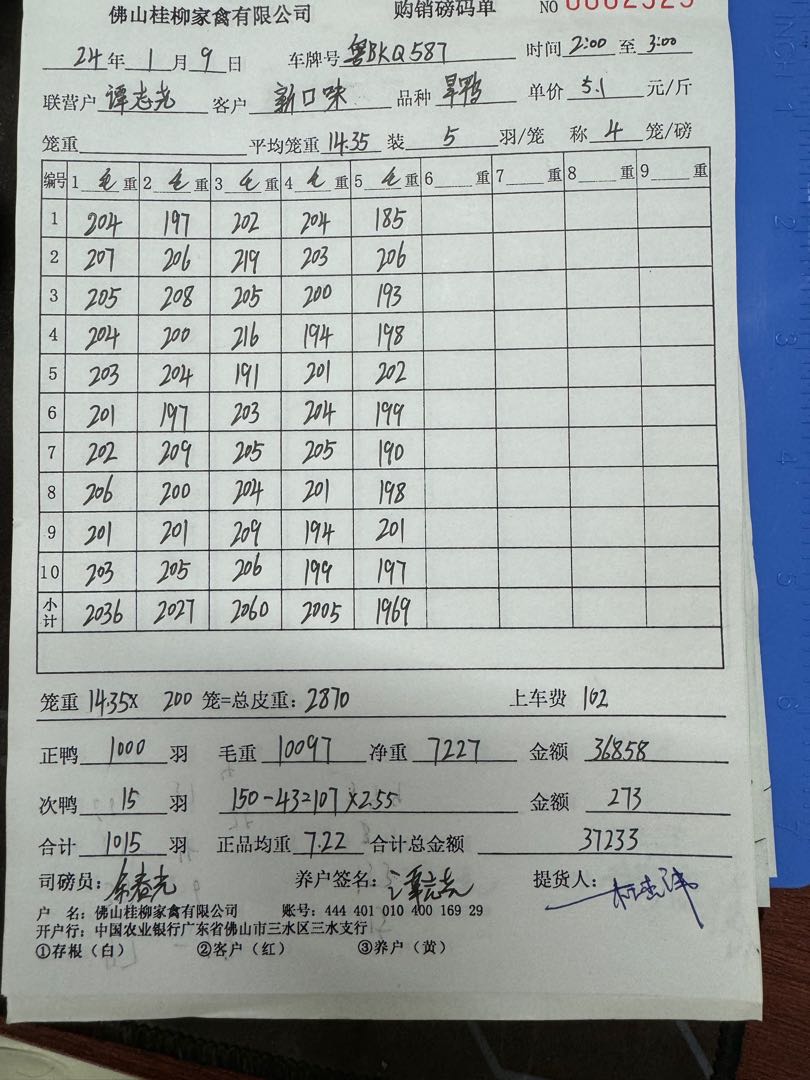 佛山桂柳家禽有限公司 购销磅码单 NO 0002929
24年1月9日 车牌号粤BKQ587 时间2:00至3:00
联营户谭志尧 客户新口味 品种旱鸭 单价5.1元/斤
笼重 平均笼重14.35 装5羽/笼 称4笼/磅
编号 1毛重 2毛重 3毛重 4毛重 5毛重 6重 7重 8重 9重
1 204 197 202 204 185
2 207 206 219 203 206
3 205 208 205 200 193
4 204 200 216 194 198
5 203 204 191 201 202
6 201 197 203 204 199
7 202 209 205 205 190
8 206 200 204 201 198
9 201 201 209 194 201
10 203 205 206 199 197
小计 2036 2027 2060 2005 1969
笼重14.35X 200笼=总皮重：2870 上车费 102
正鸭1000羽 毛重10097 净重7227 金额36858
次鸭15羽 150-43=107X2.55 金额273
合计1015羽 正品均重7.22 合计总金额37233
司磅员：余春光 养户签名：谭志尧 提货人：
户 名：佛山桂柳家禽有限公司 账号：444 401 010 400 169 29
开户行：中国农业银行广东省佛山市三水区三水支行
①存根（白） ②客户（红） ③养户（黄）